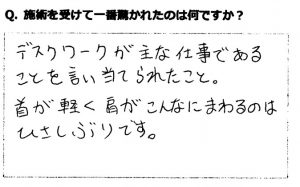 Q. 施術を受けて一番驚かれたのは何ですか？
デスクワークが主な仕事である
ことを言い当てられたこと。
首が軽く肩がこんなにまわるのは
ひさしぶりです。